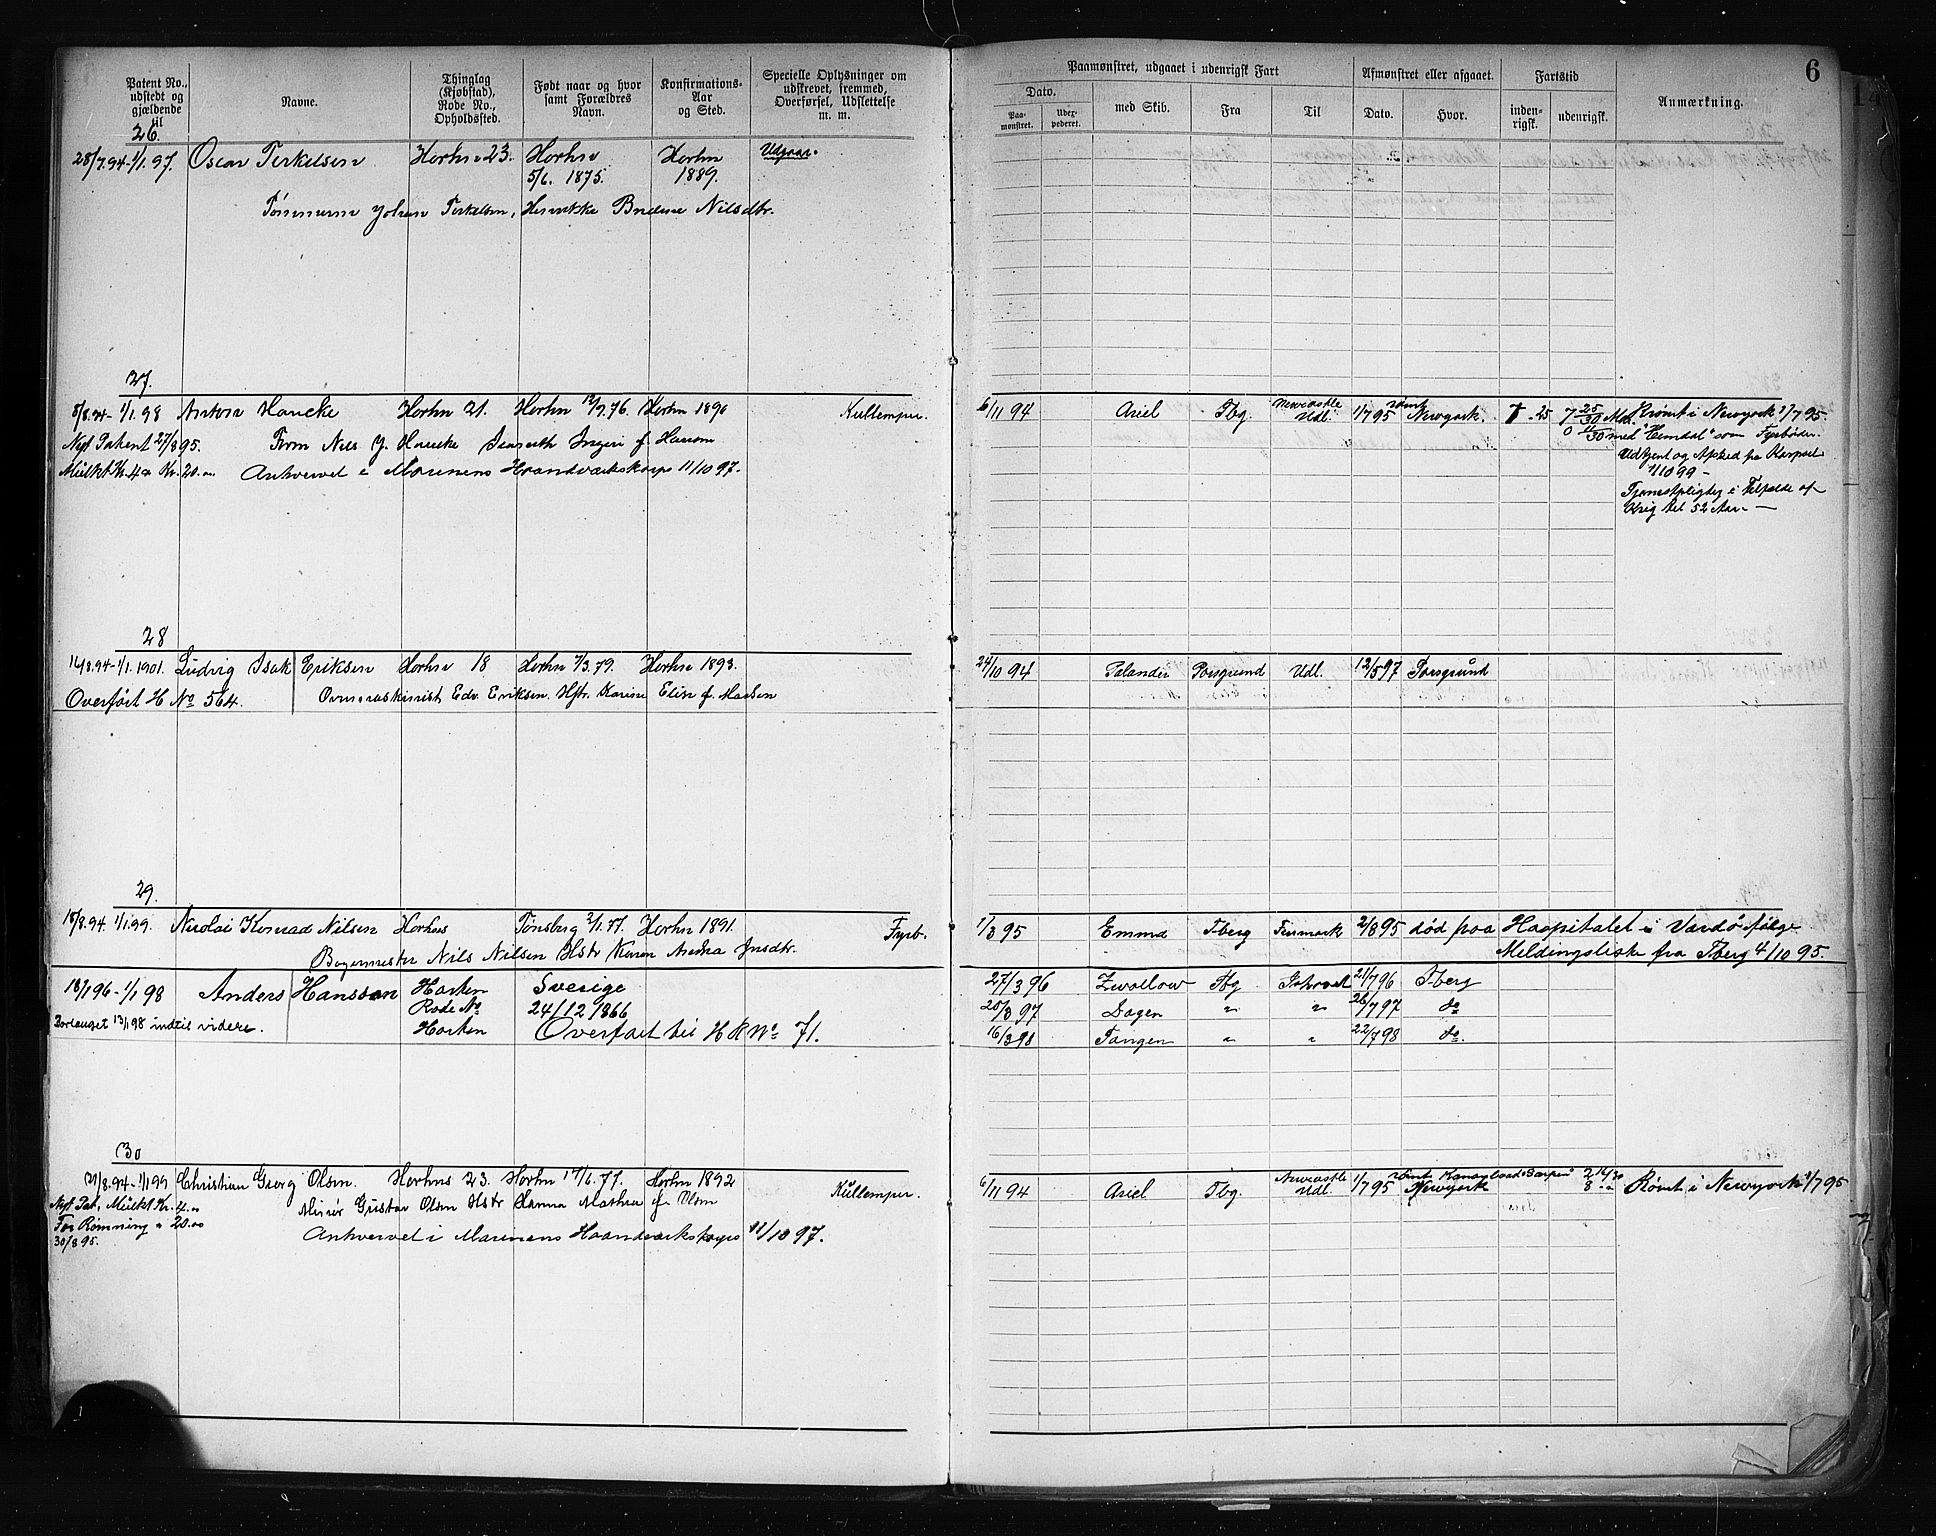 Patent No., udstedt og gjældende til
Navne.
Thinglag (Kjøbstad), Rode No., Opholdssted.
Født naar og hvor samt Forældres Navn.
Konfirmations-Aar og Sted.
Specielle Oplysninger om udskrevet, fremmed, Overførsel, Udslettelse m. m.
Paamønstret, udgaaet i udenrigsk Fart
Dato.
Paamønstret.
Udexpederet.
med Skib.
Fra
Til
Afmønstret eller afgaaet.
Dato.
Hvor.
Fartstid
indenrigsk.
udenrigsk.
Anmærkning.
6
26.
28/7.94-1/1.97. Oscar Terkelsen Horten 23. Horten Horten Udgaar.
5/6. 1875. 1889.
Tømmerm Johan Terkelsen, Nilsdtr.
27.
8/8.94-1/1.98 Anton Hancke Horten 21. Horten Horten 1890 Kullemper. 6/11 94 Ariel Tbg. Newcastle Udl. 1/7 95 rømt Newyork. Rømt i Newyork 1/7 95.
Nyt Patent 27/8 95. Nils J. Hancke med "Heimdal" som Fyrbøder.
Mulkt Kr. 4 Kr. 20. Ankvervet i Marinens Haandværkskorps 11/10 97. Udtjent og Afsked fra Korpset
1/10 99 -
Tjenestpligtig i Tilfælde af
Krig til 52 Aar. -
28
1/1.1901. Ludvig Isak Eriksen Horten 18 Horten Horten 1893. 24/10 94 Palander Porsgrund Udl. 12/5 97 Porsgrund
Overført H No 564. Edv. Eriksen. Hstr. Karine Elise f. Madsen
29.
18/8.94. 1/1.99. Nicolai Konrad Nilsen Horten Tønsberg 2/1.77. Horten 1891. Fyrb. 1/3 95 Emma Tberg Finmark 2/8 95 død paa Hospitalet i Vardø ifølge
Nils Nilsen Hstr Karen Andrea Meldingsliste fra Tberg 4/10 95.
18/1 96-1/1 98 Anders Hansson Horten Sverige 27/3 96 Tbg 21/7 96 Tberg
Rode No 24/12 1866 20/3 97 Dagen " " 26/7 97 do
Forlænget 13/1 98 indtil videre. Horten Overført til H R No 71. 16/3 98 Tangen " " 22/7 98 do.
30
21/8.94-1/1 99 Christian Georg Olsen. Horten 23. Horten 17/6.77. Horten 1892 Kullemper. 6/11 94 Ariel Tbg. Newcastle Udl. 1/7 95 Newyork Rømt i Newyork 1/7 95
Nyt Pat. Mulkt Kr. 4. Gustav Olsen Hstr Hanna Mathea f. Olsen
For Rømning " 20.00 Ankvervet i Marinens Haandværkskorps 11/10 97.
30/8 95.